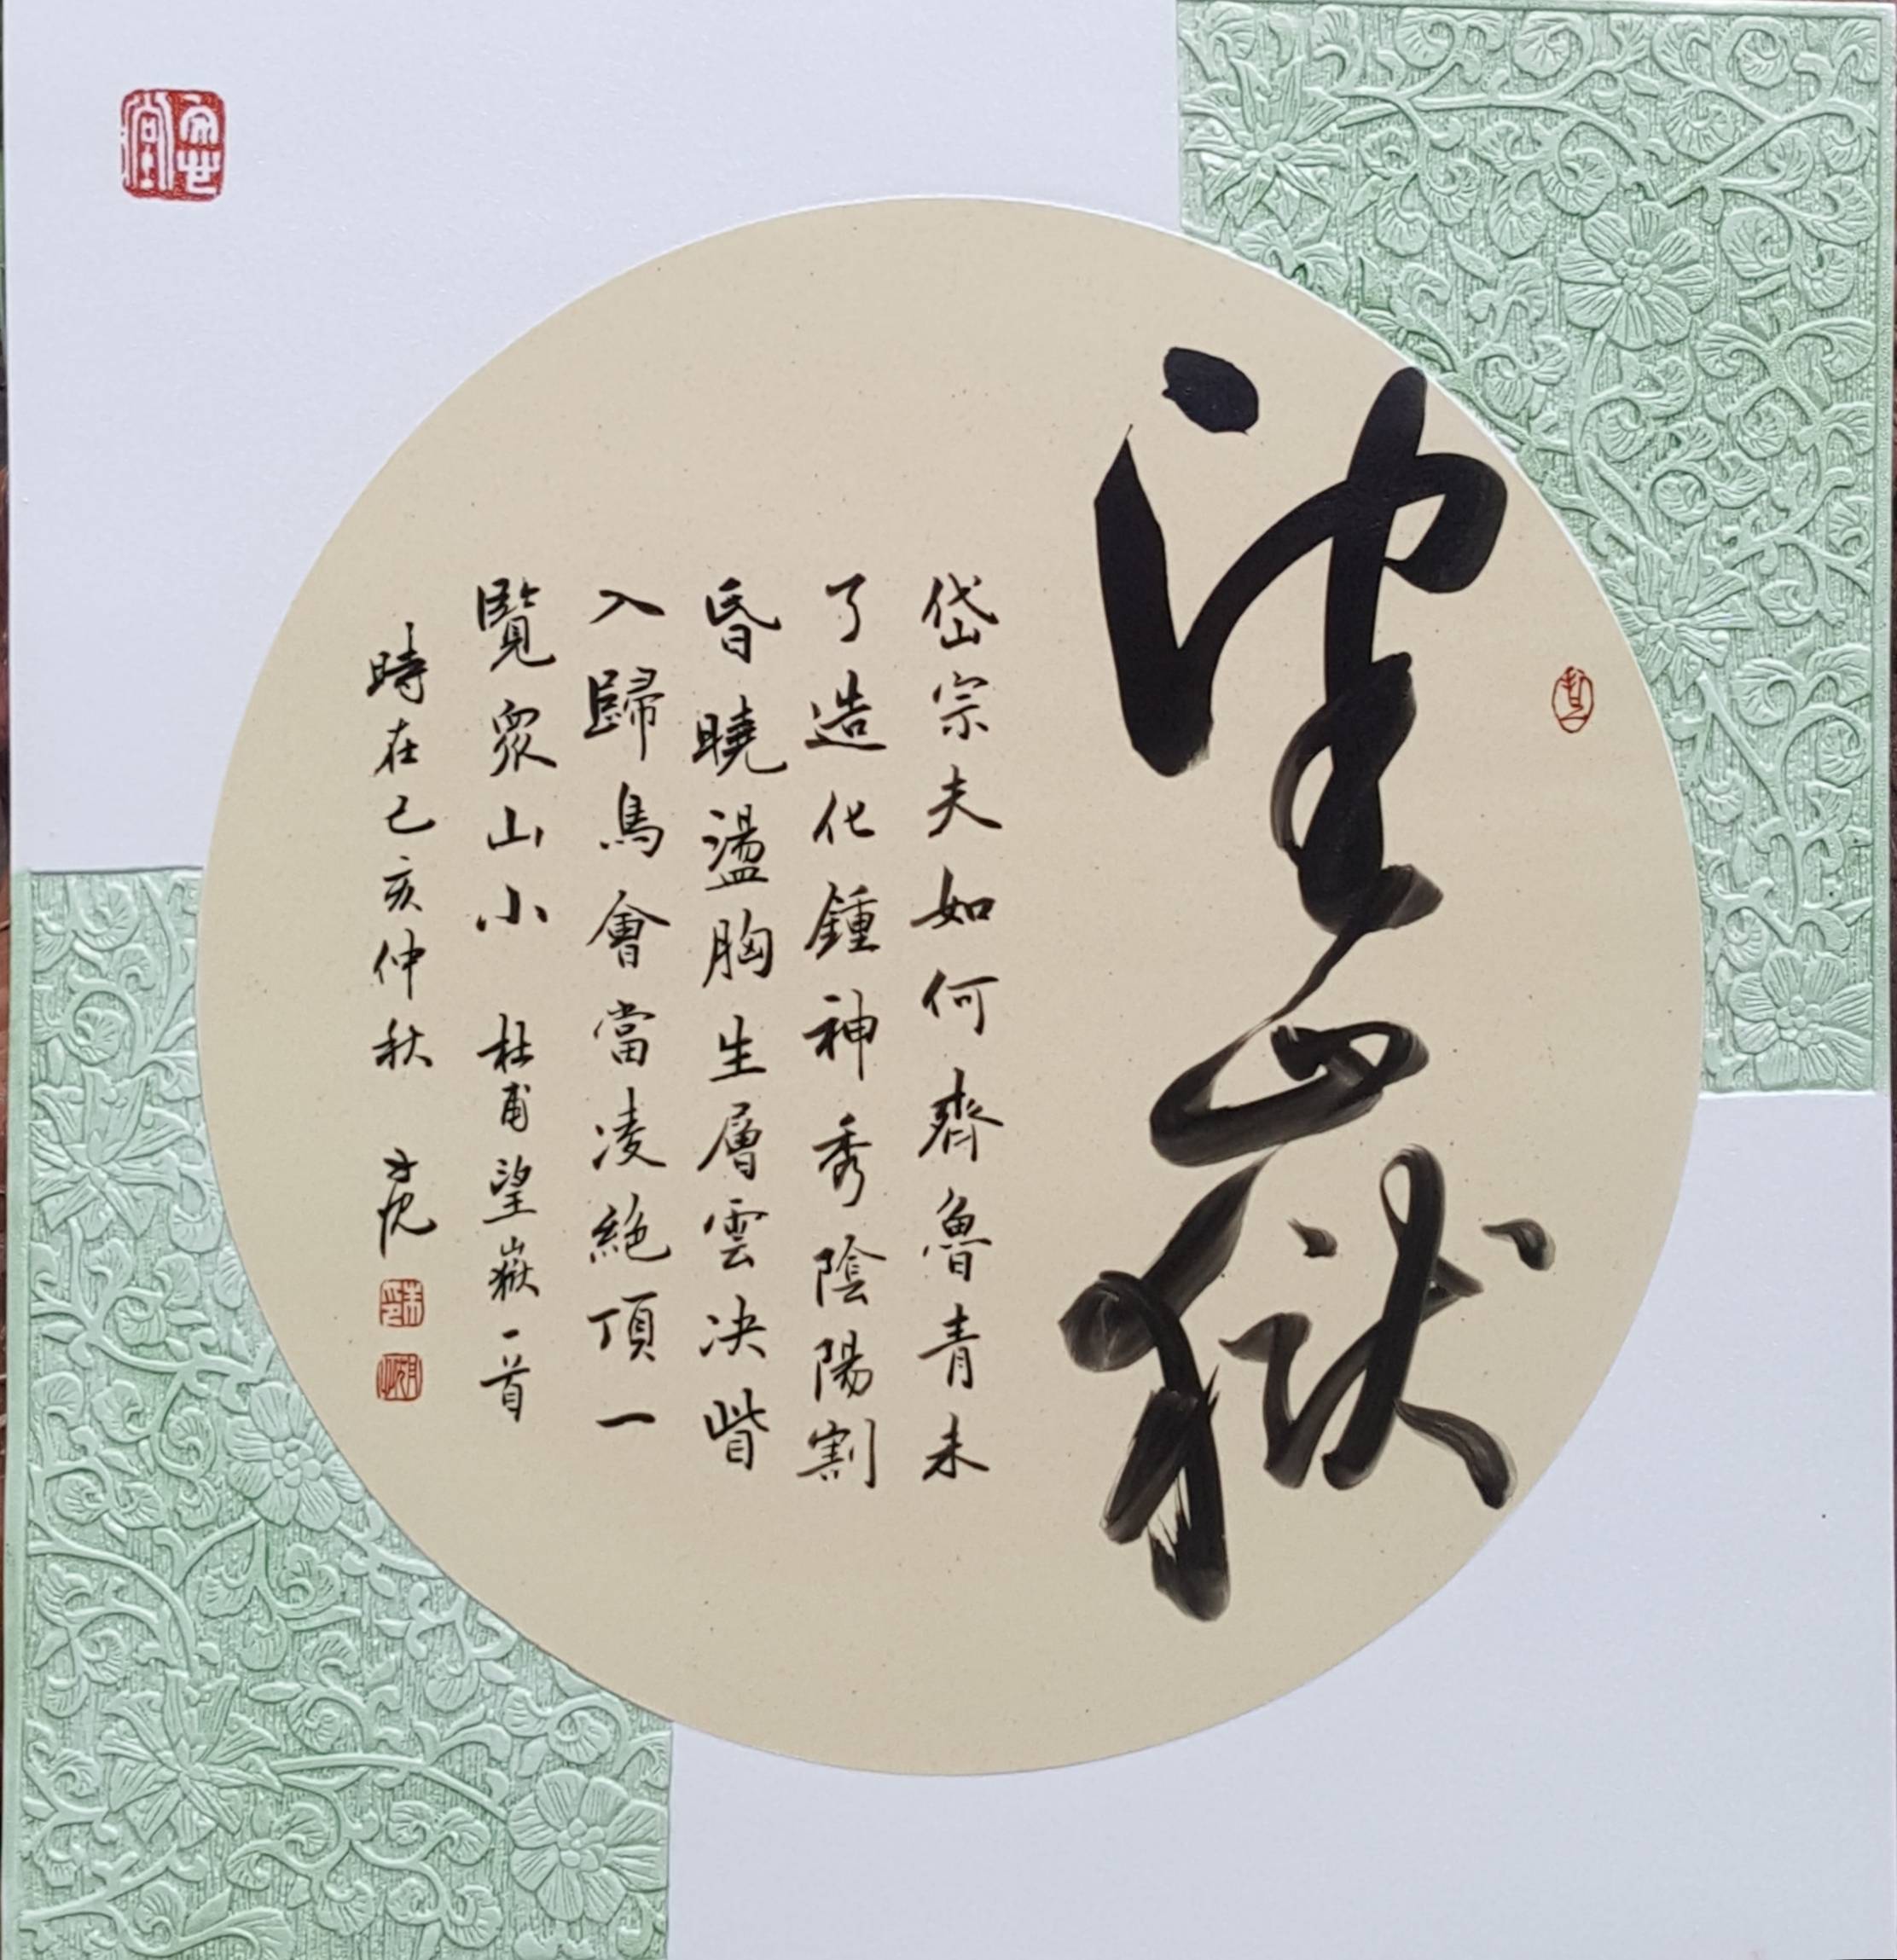 望嶽
岱宗夫如何齊魯青未
了造化鍾神秀陰陽割
昏曉盪胸生層雲決眥
入歸鳥會當凌絕頂一
覽眾山小 杜甫望嶽一首
時在己亥仲秋